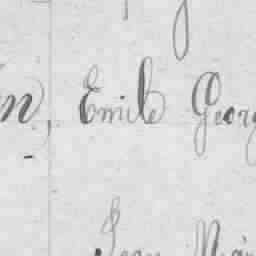 Emile Georg
Jean